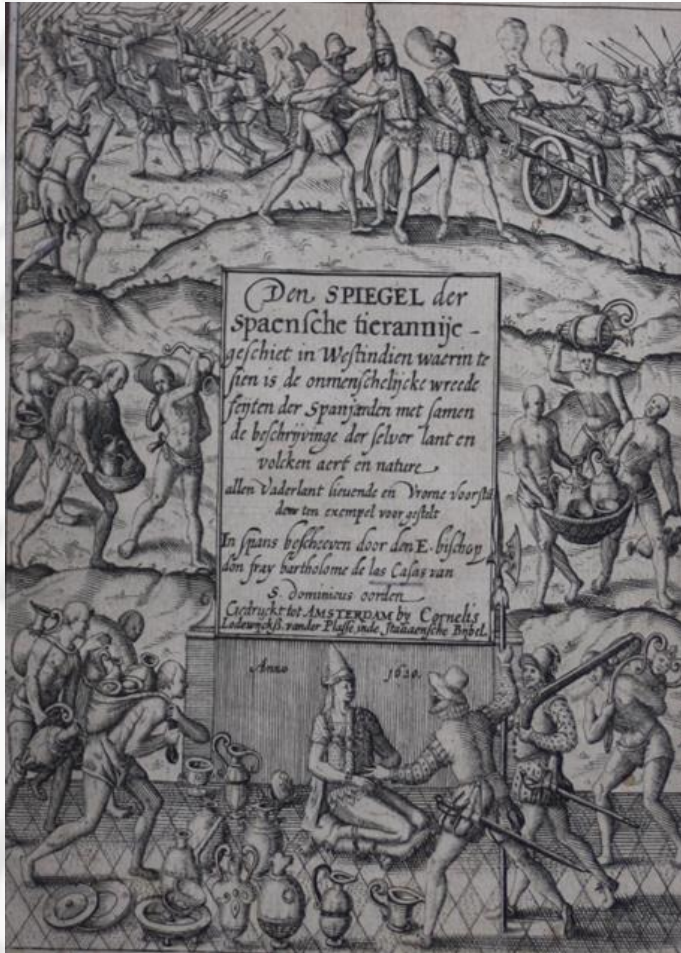 Den SPIEGEL der
Spaensche tierannije-
geschiet in Westindien waerin te
sien is de onmenschelijcke wreede
feyten der Spanjarden met samen
de beschrijvinge der selver lant en
volcken aert en nature
allen Vaderlant lieuende en Vrome voorstā
ders ten exempel voor gestelt
In spans bescheeven door den E. bischop
don fray bartholome de las Casas van
S. dominicus oorden
Gedruckt tot AMSTERDAM by Cornelis
Lodewijckſz. vander Plasse inde Italiaensche Bijbel.
Anno 1620.